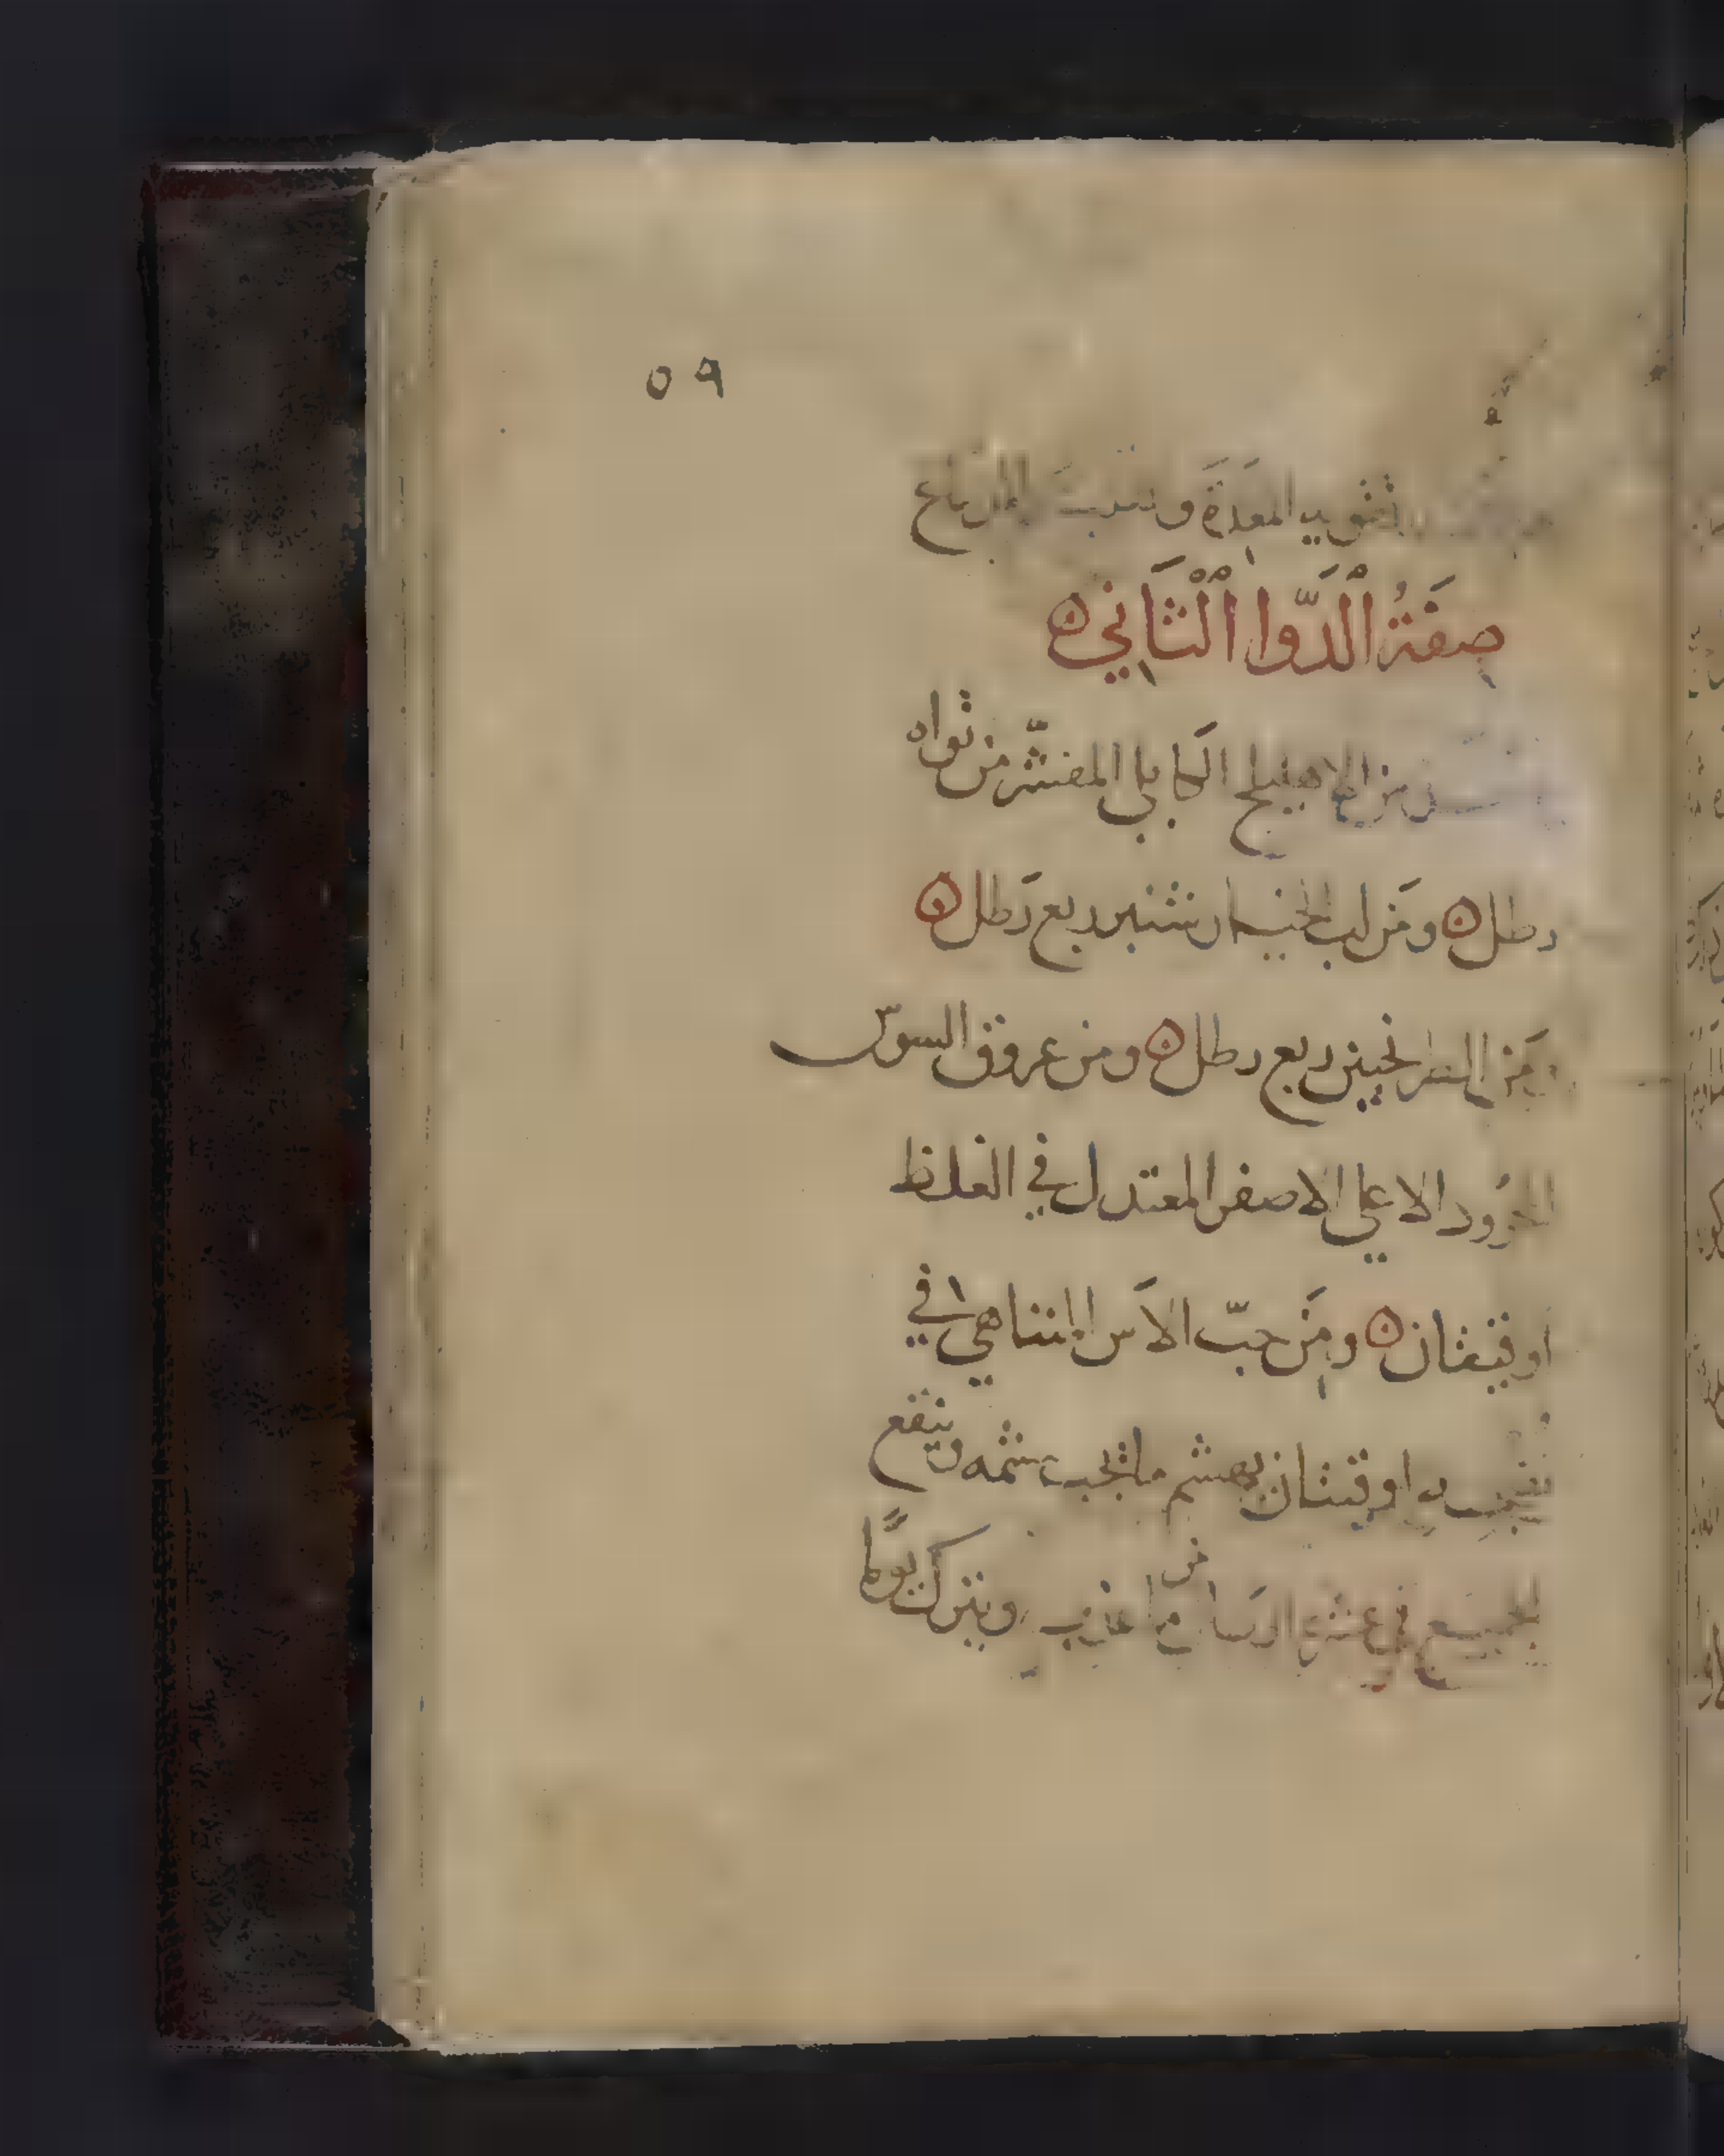 ٥٩
تقويه المعدة
صِفَةُ ٱلْدَّوا ٱلْثَاني ۞
من الاهليلج الكابلي المقشّر من نواه
رطل ۞ ومن لب الخيار شنبر ربع رطل ۞
ومن الترنجبين ربع رطل ۞ ومن عروق السوس
المجرود الاعلي الاصفر المعتدل في الغلظ
اوقيتان ۞ ومن حبّ الاس المتناهي في
اوقيتان يهشم ما يجب هشمه وينقع
الجميع في عشرة ارطال من ما عذب ويترك يومًا